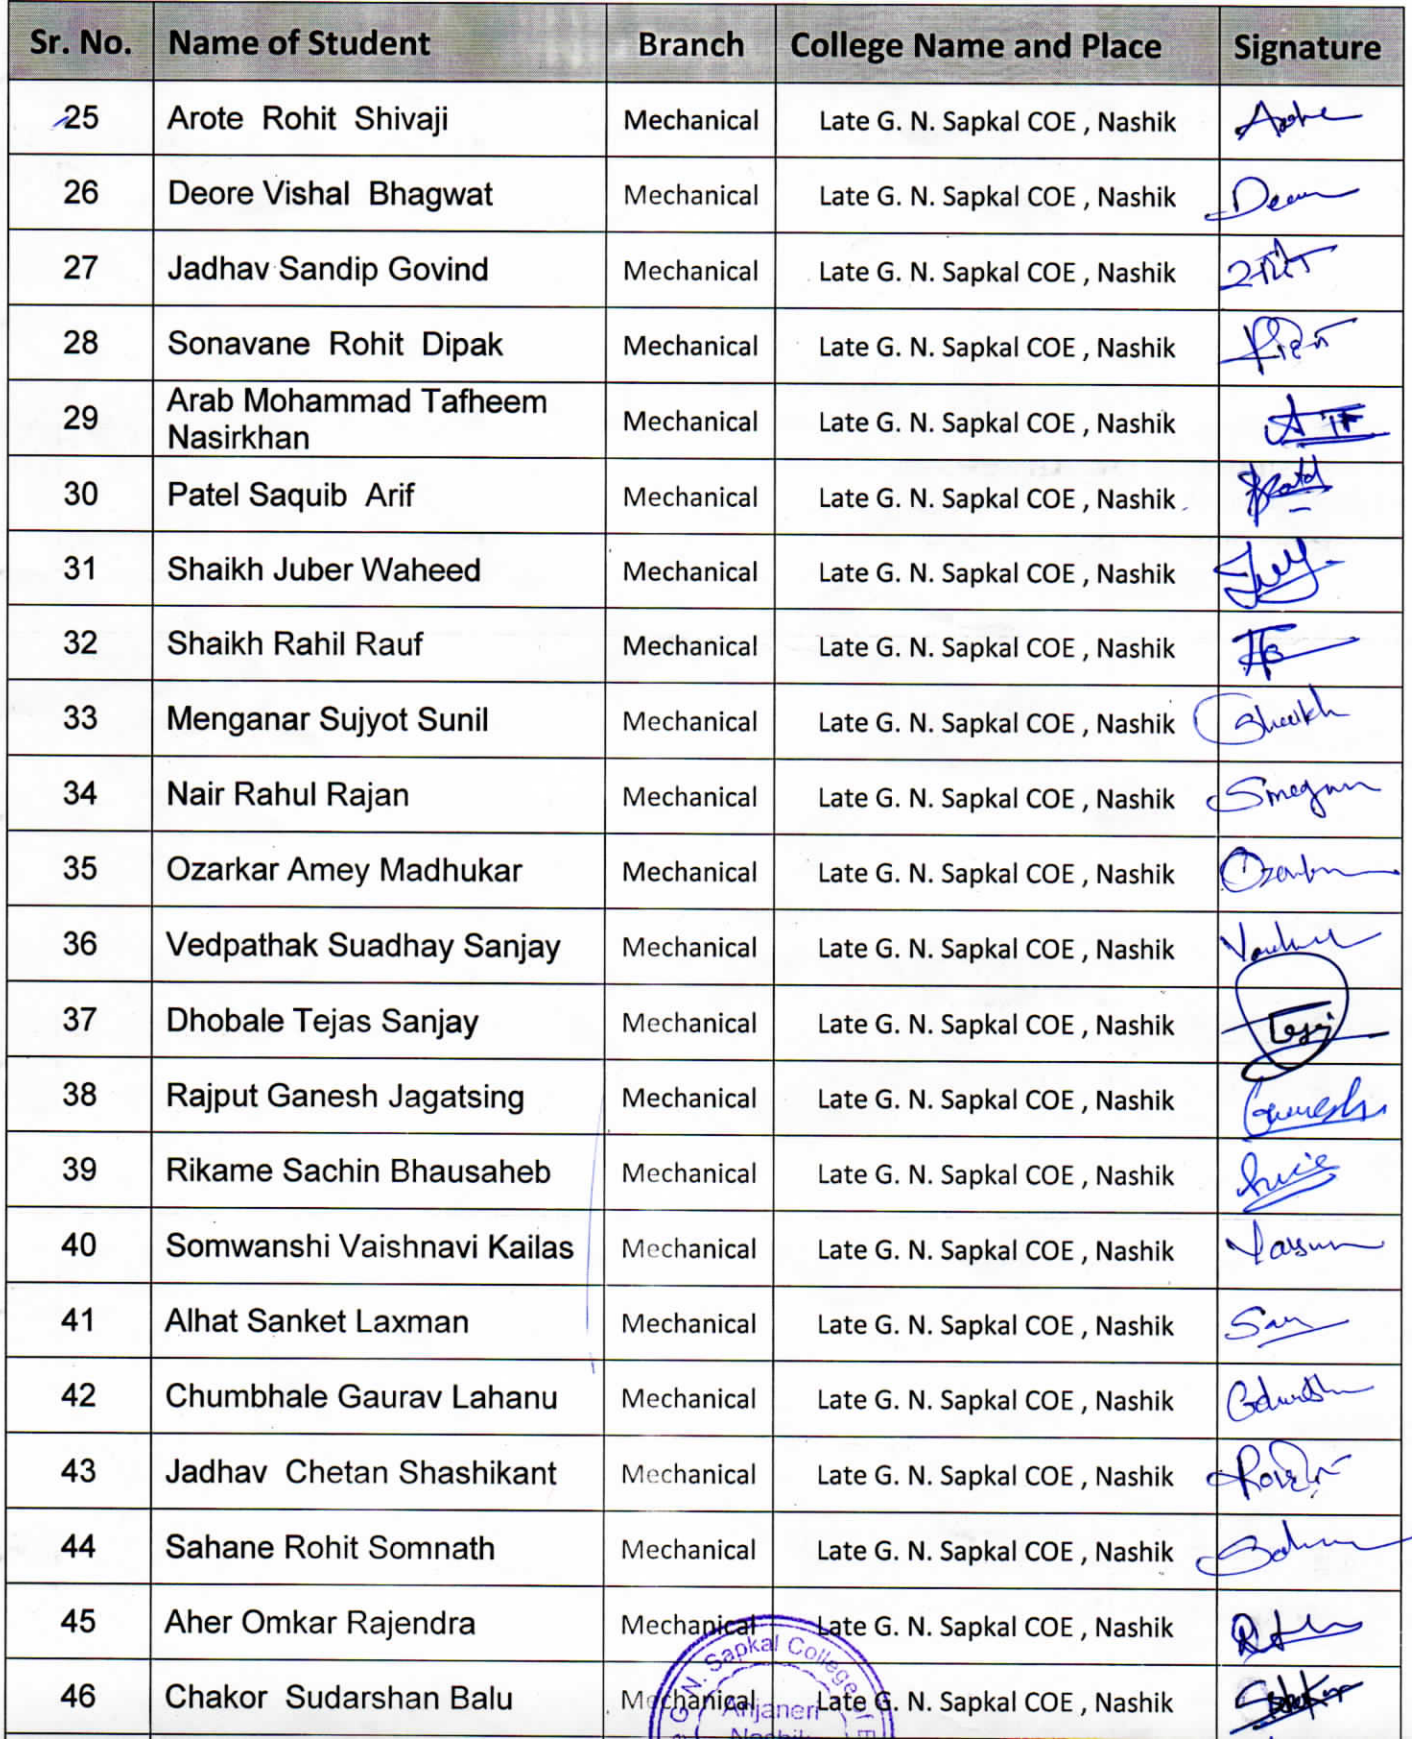 Sr. No. Name of Student Branch College Name and Place Signature
25 Arote Rohit Shivaji Mechanical Late G. N. Sapkal COE , Nashik Arote
26 Deore Vishal Bhagwat Mechanical Late G. N. Sapkal COE , Nashik
27 Jadhav Sandip Govind Mechanical Late G. N. Sapkal COE , Nashik
28 Sonavane Rohit Dipak Mechanical Late G. N. Sapkal COE , Nashik
29 Arab Mohammad Tafheem
Nasirkhan Mechanical Late G. N. Sapkal COE , Nashik
30 Patel Saquib Arif Mechanical Late G. N. Sapkal COE , Nashik
31 Shaikh Juber Waheed Mechanical Late G. N. Sapkal COE , Nashik
32 Shaikh Rahil Rauf Mechanical Late G. N. Sapkal COE , Nashik
33 Menganar Sujyot Sunil Mechanical Late G. N. Sapkal COE , Nashik Shaikh
34 Nair Rahul Rajan Mechanical Late G. N. Sapkal COE , Nashik
35 Ozarkar Amey Madhukar Mechanical Late G. N. Sapkal COE , Nashik
36 Vedpathak Suadhay Sanjay Mechanical Late G. N. Sapkal COE , Nashik
37 Dhobale Tejas Sanjay Mechanical Late G. N. Sapkal COE , Nashik
38 Rajput Ganesh Jagatsing Mechanical Late G. N. Sapkal COE , Nashik Ganesh
39 Rikame Sachin Bhausaheb Mechanical Late G. N. Sapkal COE , Nashik
40 Somwanshi Vaishnavi Kailas Mechanical Late G. N. Sapkal COE , Nashik
41 Alhat Sanket Laxman Mechanical Late G. N. Sapkal COE , Nashik
42 Chumbhale Gaurav Lahanu Mechanical Late G. N. Sapkal COE , Nashik
43 Jadhav Chetan Shashikant Mechanical Late G. N. Sapkal COE , Nashik
44 Sahane Rohit Somnath Mechanical Late G. N. Sapkal COE , Nashik
45 Aher Omkar Rajendra Mechanical Late G. N. Sapkal COE , Nashik
46 Chakor Sudarshan Balu Mechanical Late G. N. Sapkal COE , Nashik
G. N. Sapkal College of E
Anjaneri
Nashik